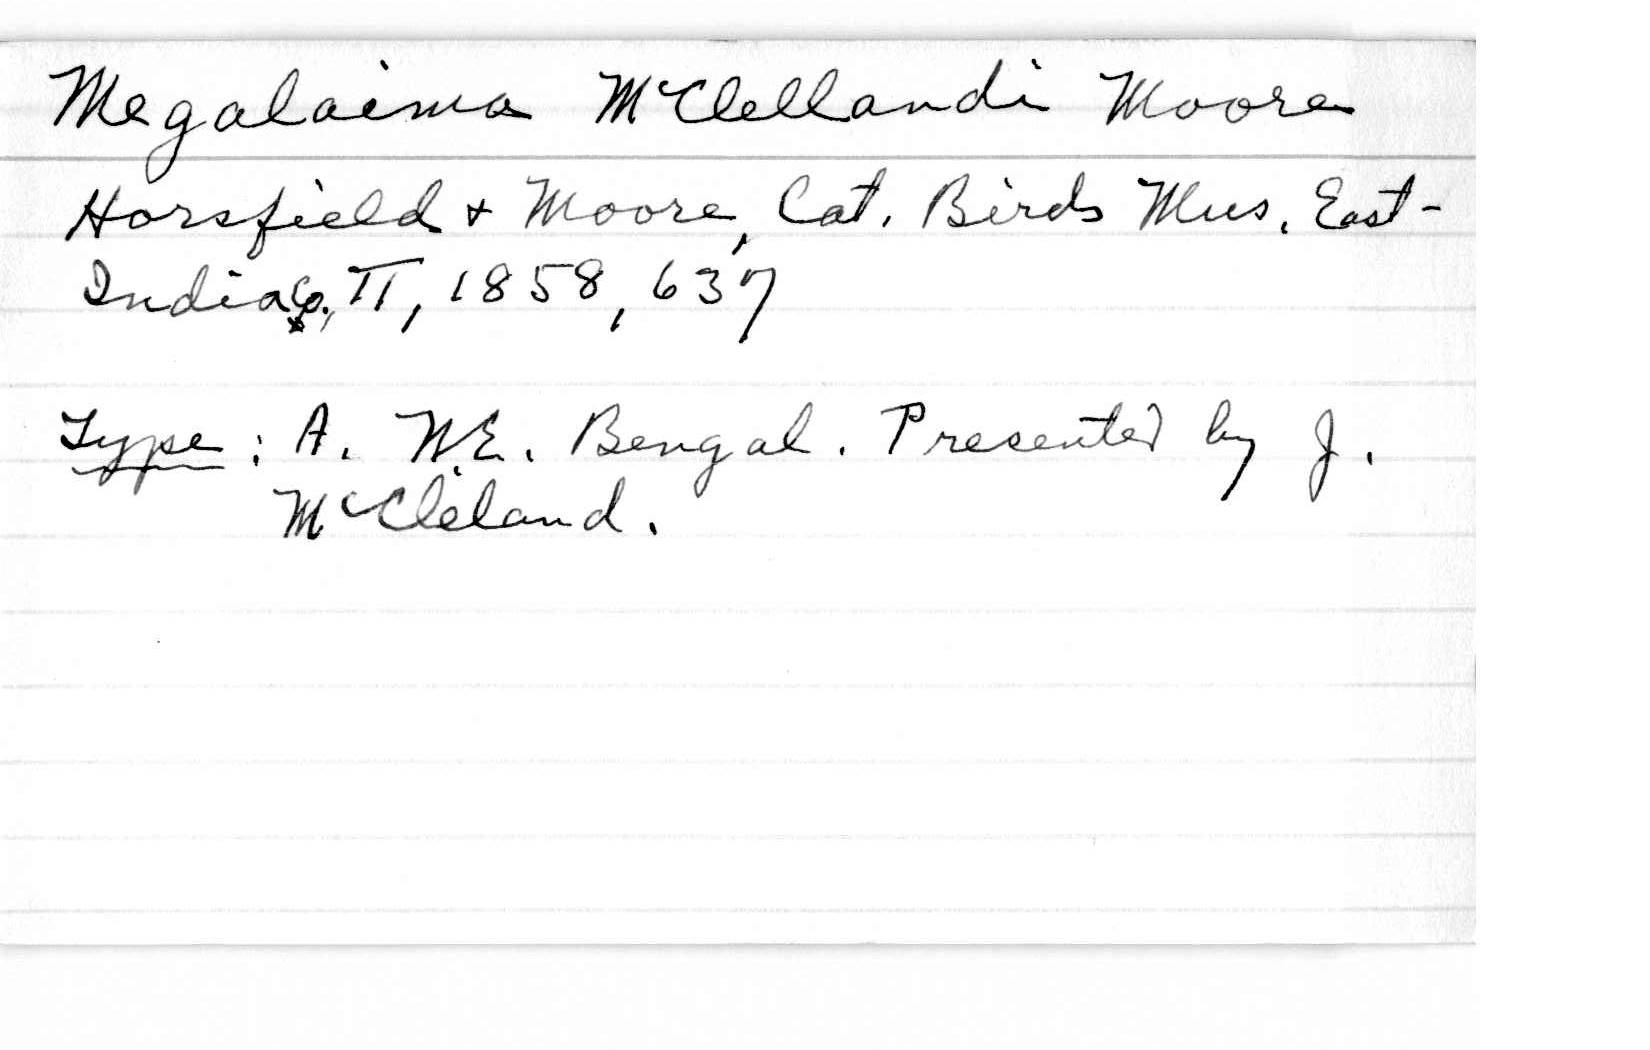 Megalaima McClellandi Moore
Horsfield & Moore, Cat. Birds Mus. East-
India Co., II, 1858, 637
Type: A. N.E. Bengal. Presented by J.
McCleland.